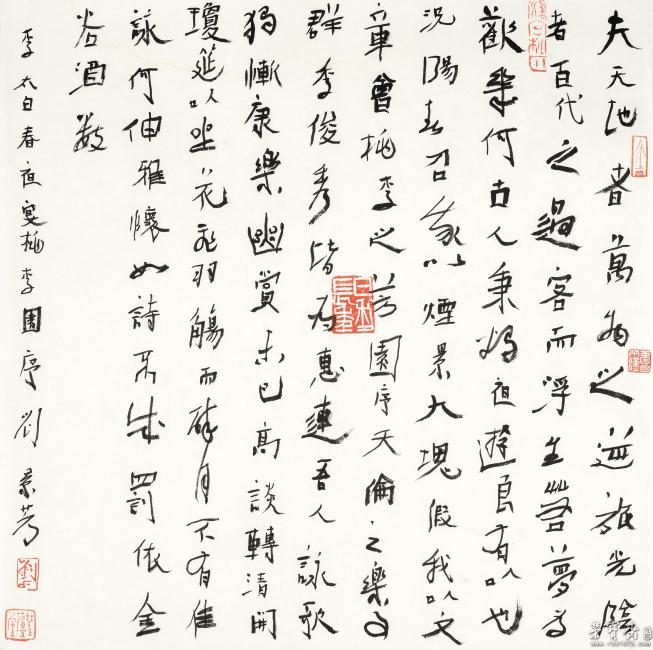 夫天地者萬物之逆旅光陰
者百代之過客而浮生若夢為
歡幾何古人秉燭夜遊良有以也
況陽春召我以煙景大塊假我以文
章會桃李之芳園序天倫之樂事
群季俊秀皆為惠連吾人詠歌
獨慚康樂幽賞未已高談轉清開
瓊筵以坐花飛羽觴而醉月不有佳
詠何伸雅懷如詩不成罰依金
谷酒數
李太白春夜宴桃李園序 劉景芳